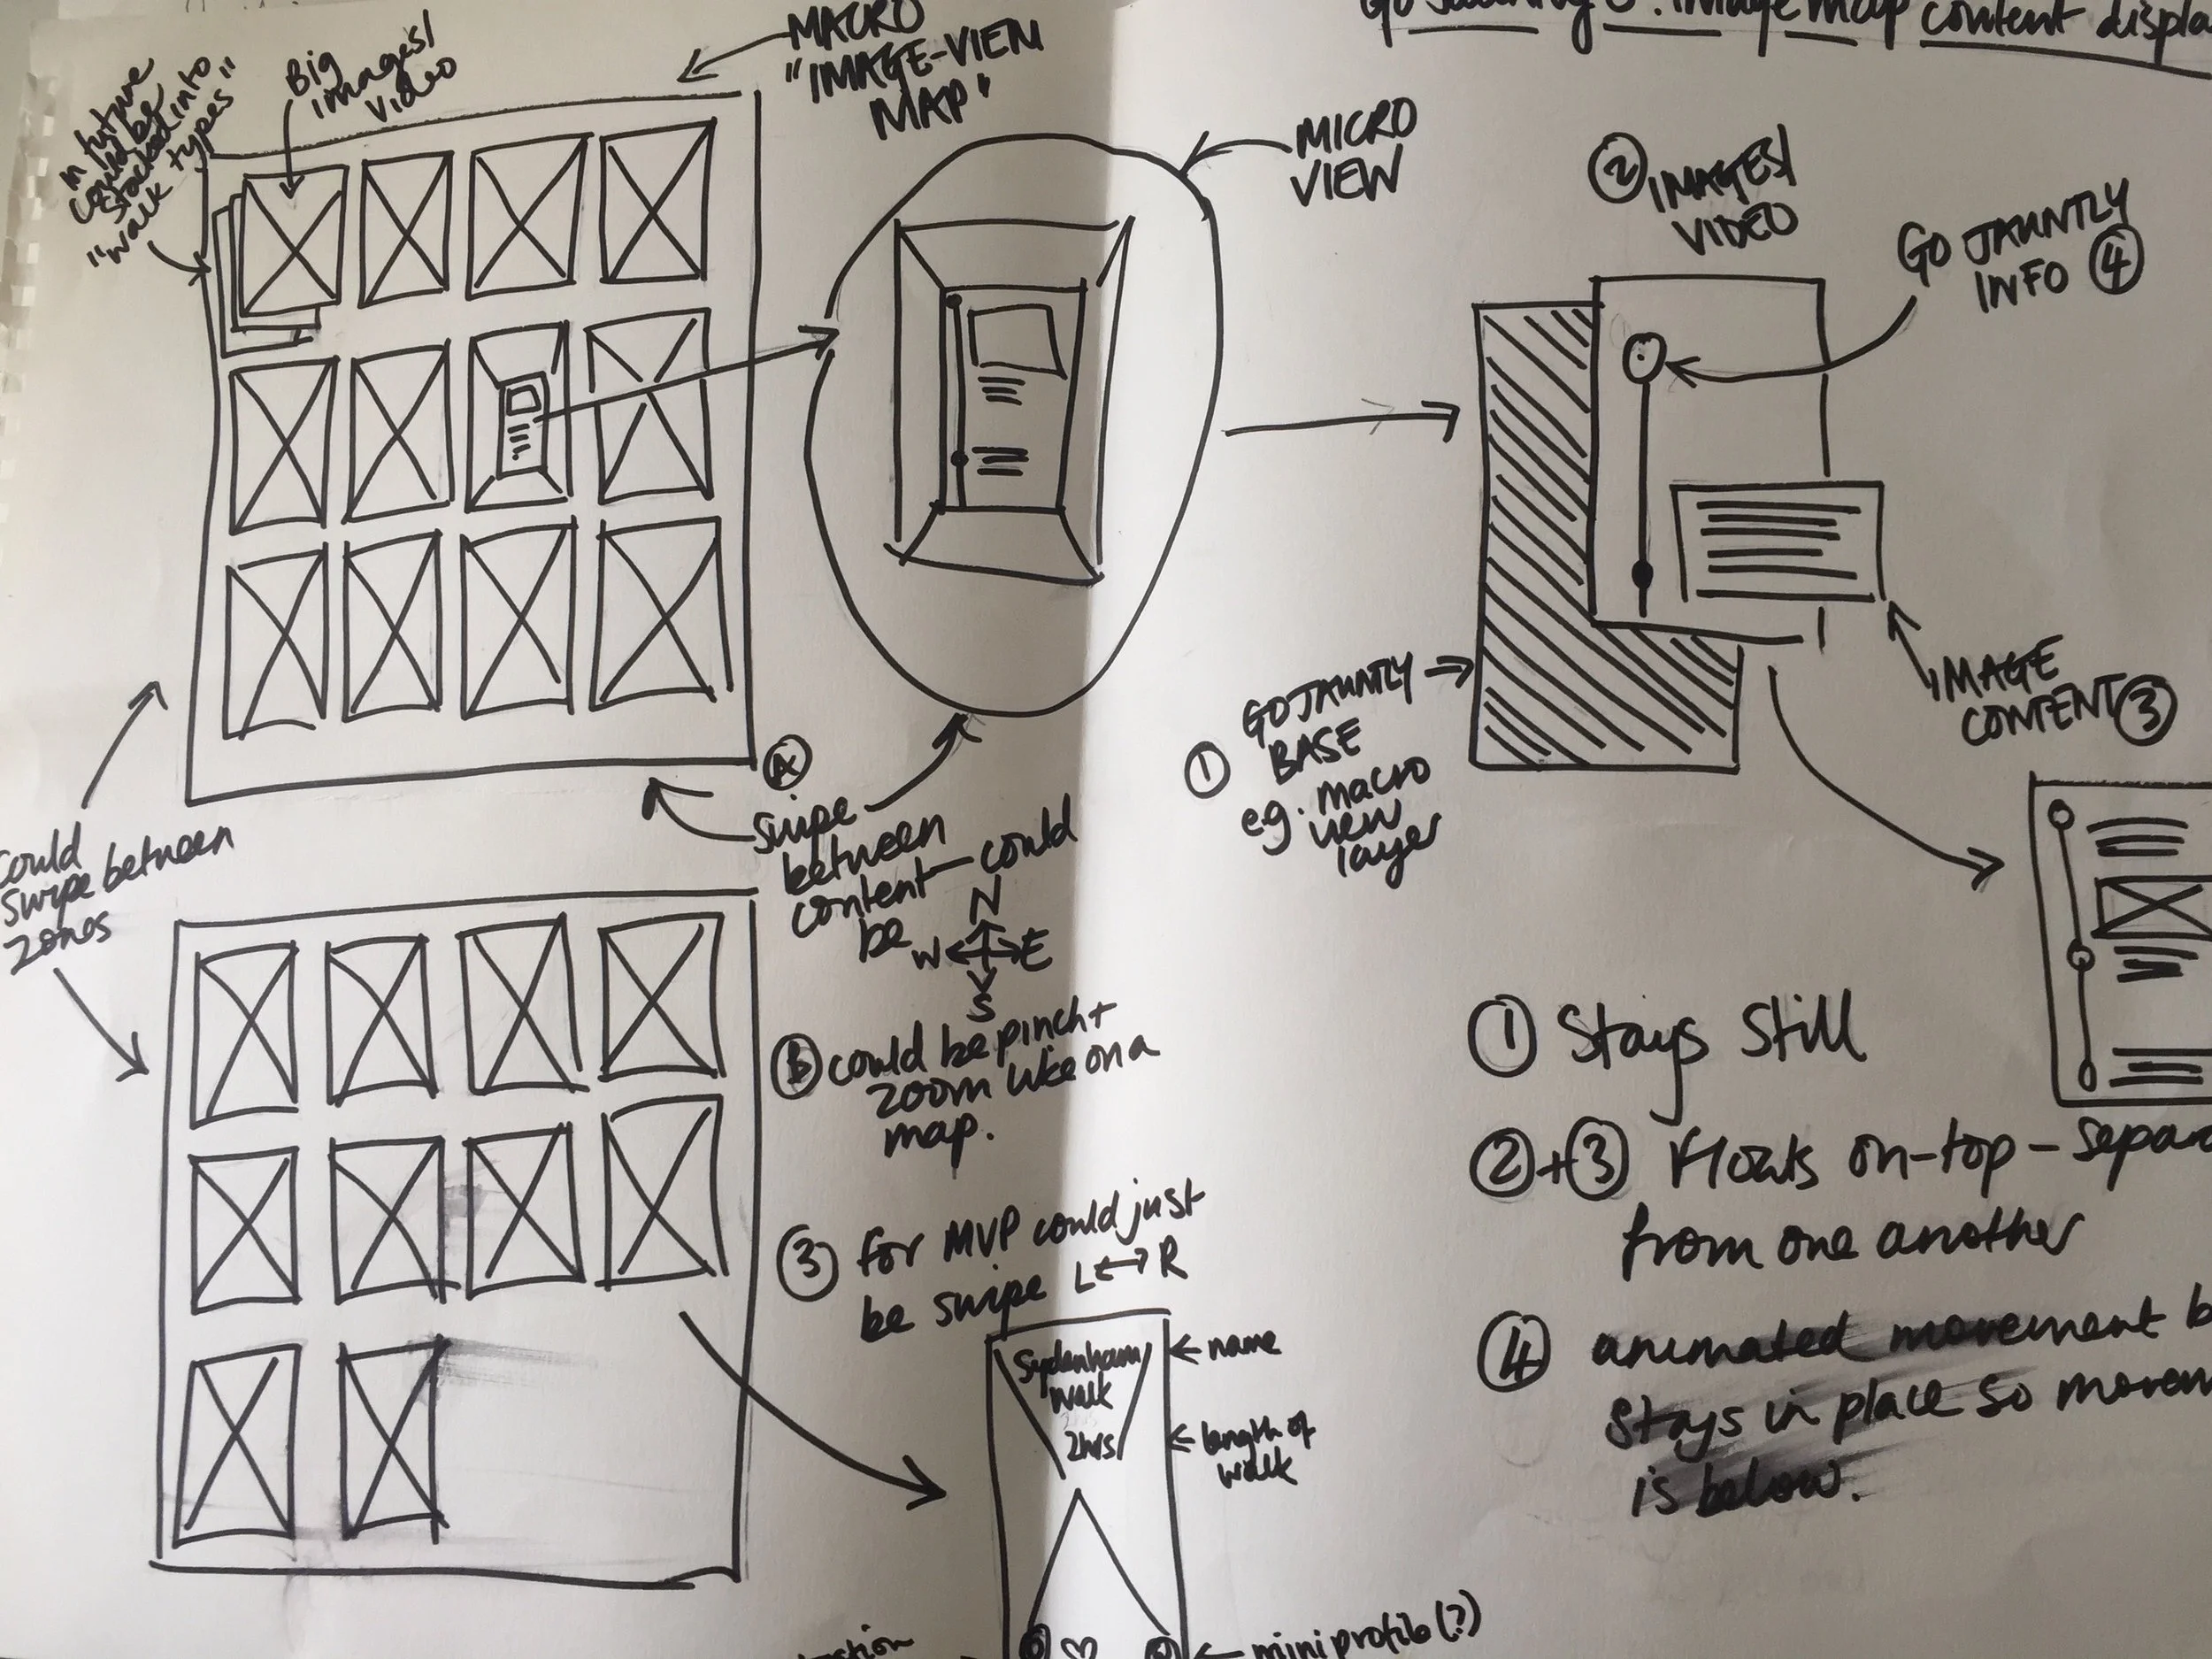 Go Jauntly : image map content displa
MACRO
"IMAGE-VIEW
MAP"
Big
images/
video
in future
could be
stacked into
"walk types"
MICRO
VIEW
② IMAGES/
VIDEO
GO JAUNTLY
INFO ④
IMAGE
CONTENT ③
① GO JAUNTLY
BASE
e.g. macro
view
layer
Could
swipe between
zones
Ⓐ
Swipe
between
content - could
be
N
W E
S
Ⓑ could be pinch +
zoom like on a
map.
③ for MVP could just
be swipe L ↔ R
Sydenham
Walk
2hrs
← name
← length of
walk
← mini profile (?)
① Stays Still
② + ③ floats on-top - separa
from one another
④ animated movement b
stays in place so movem
is below.